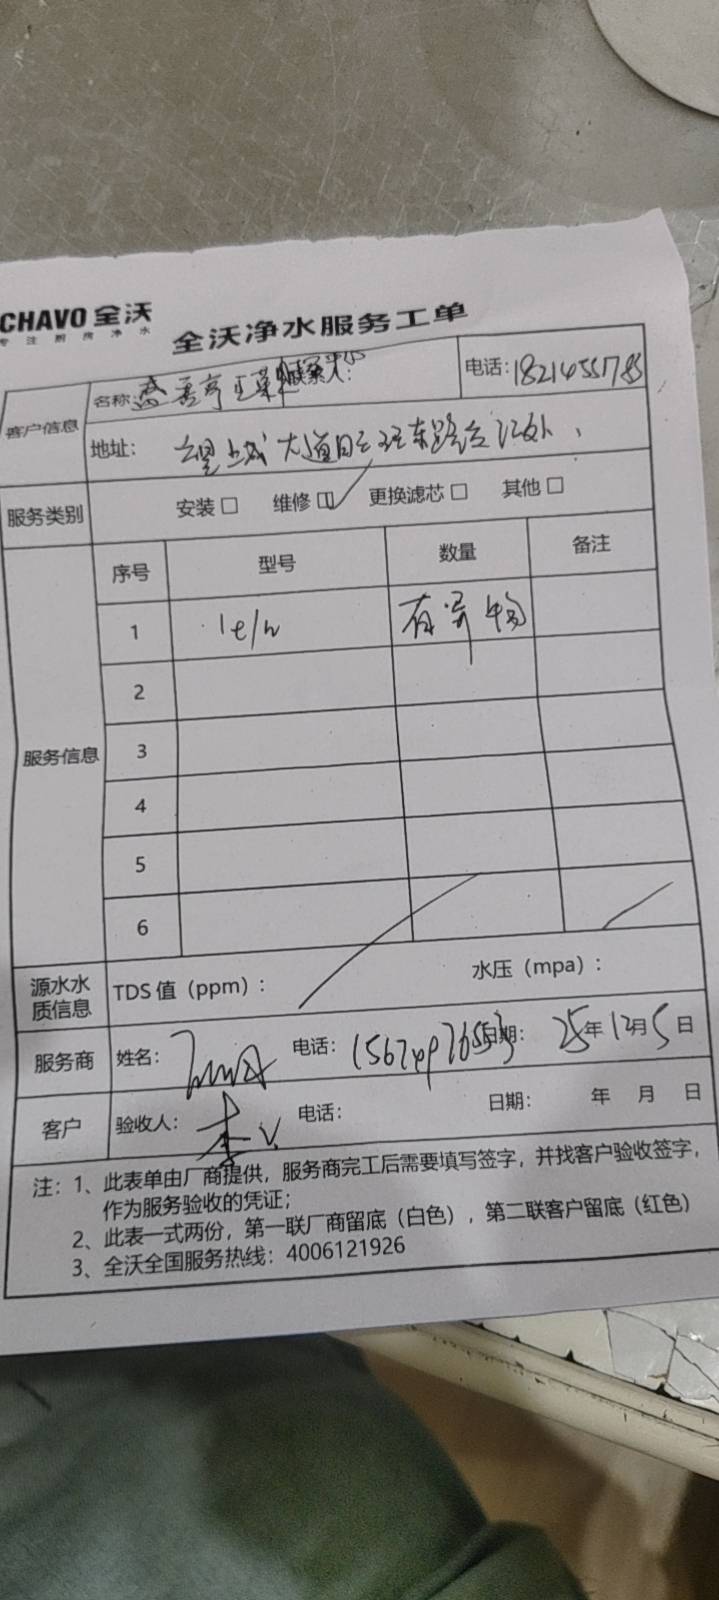 CHAVO 全沃
专注厨房净水
全沃净水服务工单
客户信息
名称:
联系人:
电话: 18214551785
地址:
服务类别
安装□ 维修□✓ 更换滤芯□ 其他□
服务信息
序号 型号 数量 备注
1
2
3
4
5
6
源水水质信息
TDS 值（ppm）: 水压（mpa）:
服务商
姓名: 电话: 日期: 25年12月5日
客户
验收人: 电话: 日期: 年 月 日
注: 1、此表单由厂商提供，服务商完工后需要填写签字，并找客户验收签字，
作为服务验收的凭证;
2、此表一式两份，第一联厂商留底（白色），第二联客户留底（红色）
3、全沃全国服务热线: 4006121926